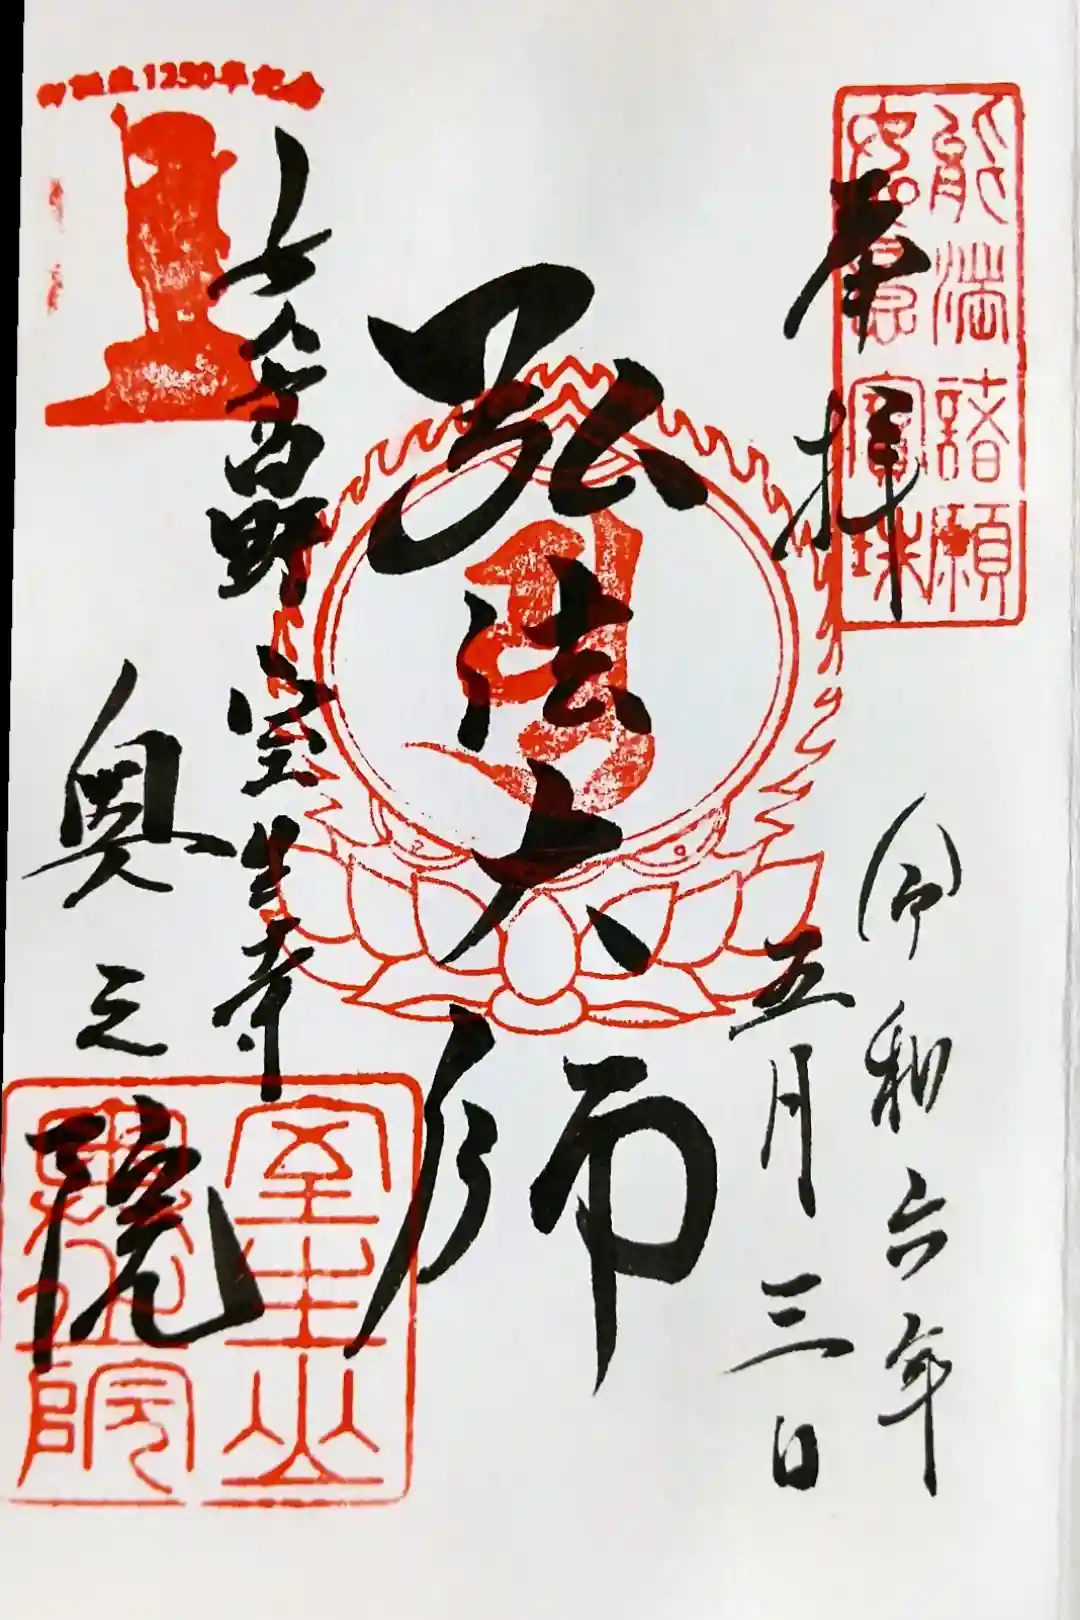 奉拝
能満諸願
如意宝珠
令和六年
五月三日
弘法大師
女人高野
室生寺
奥之院
室生山
奥之院
御誕生1250年記念